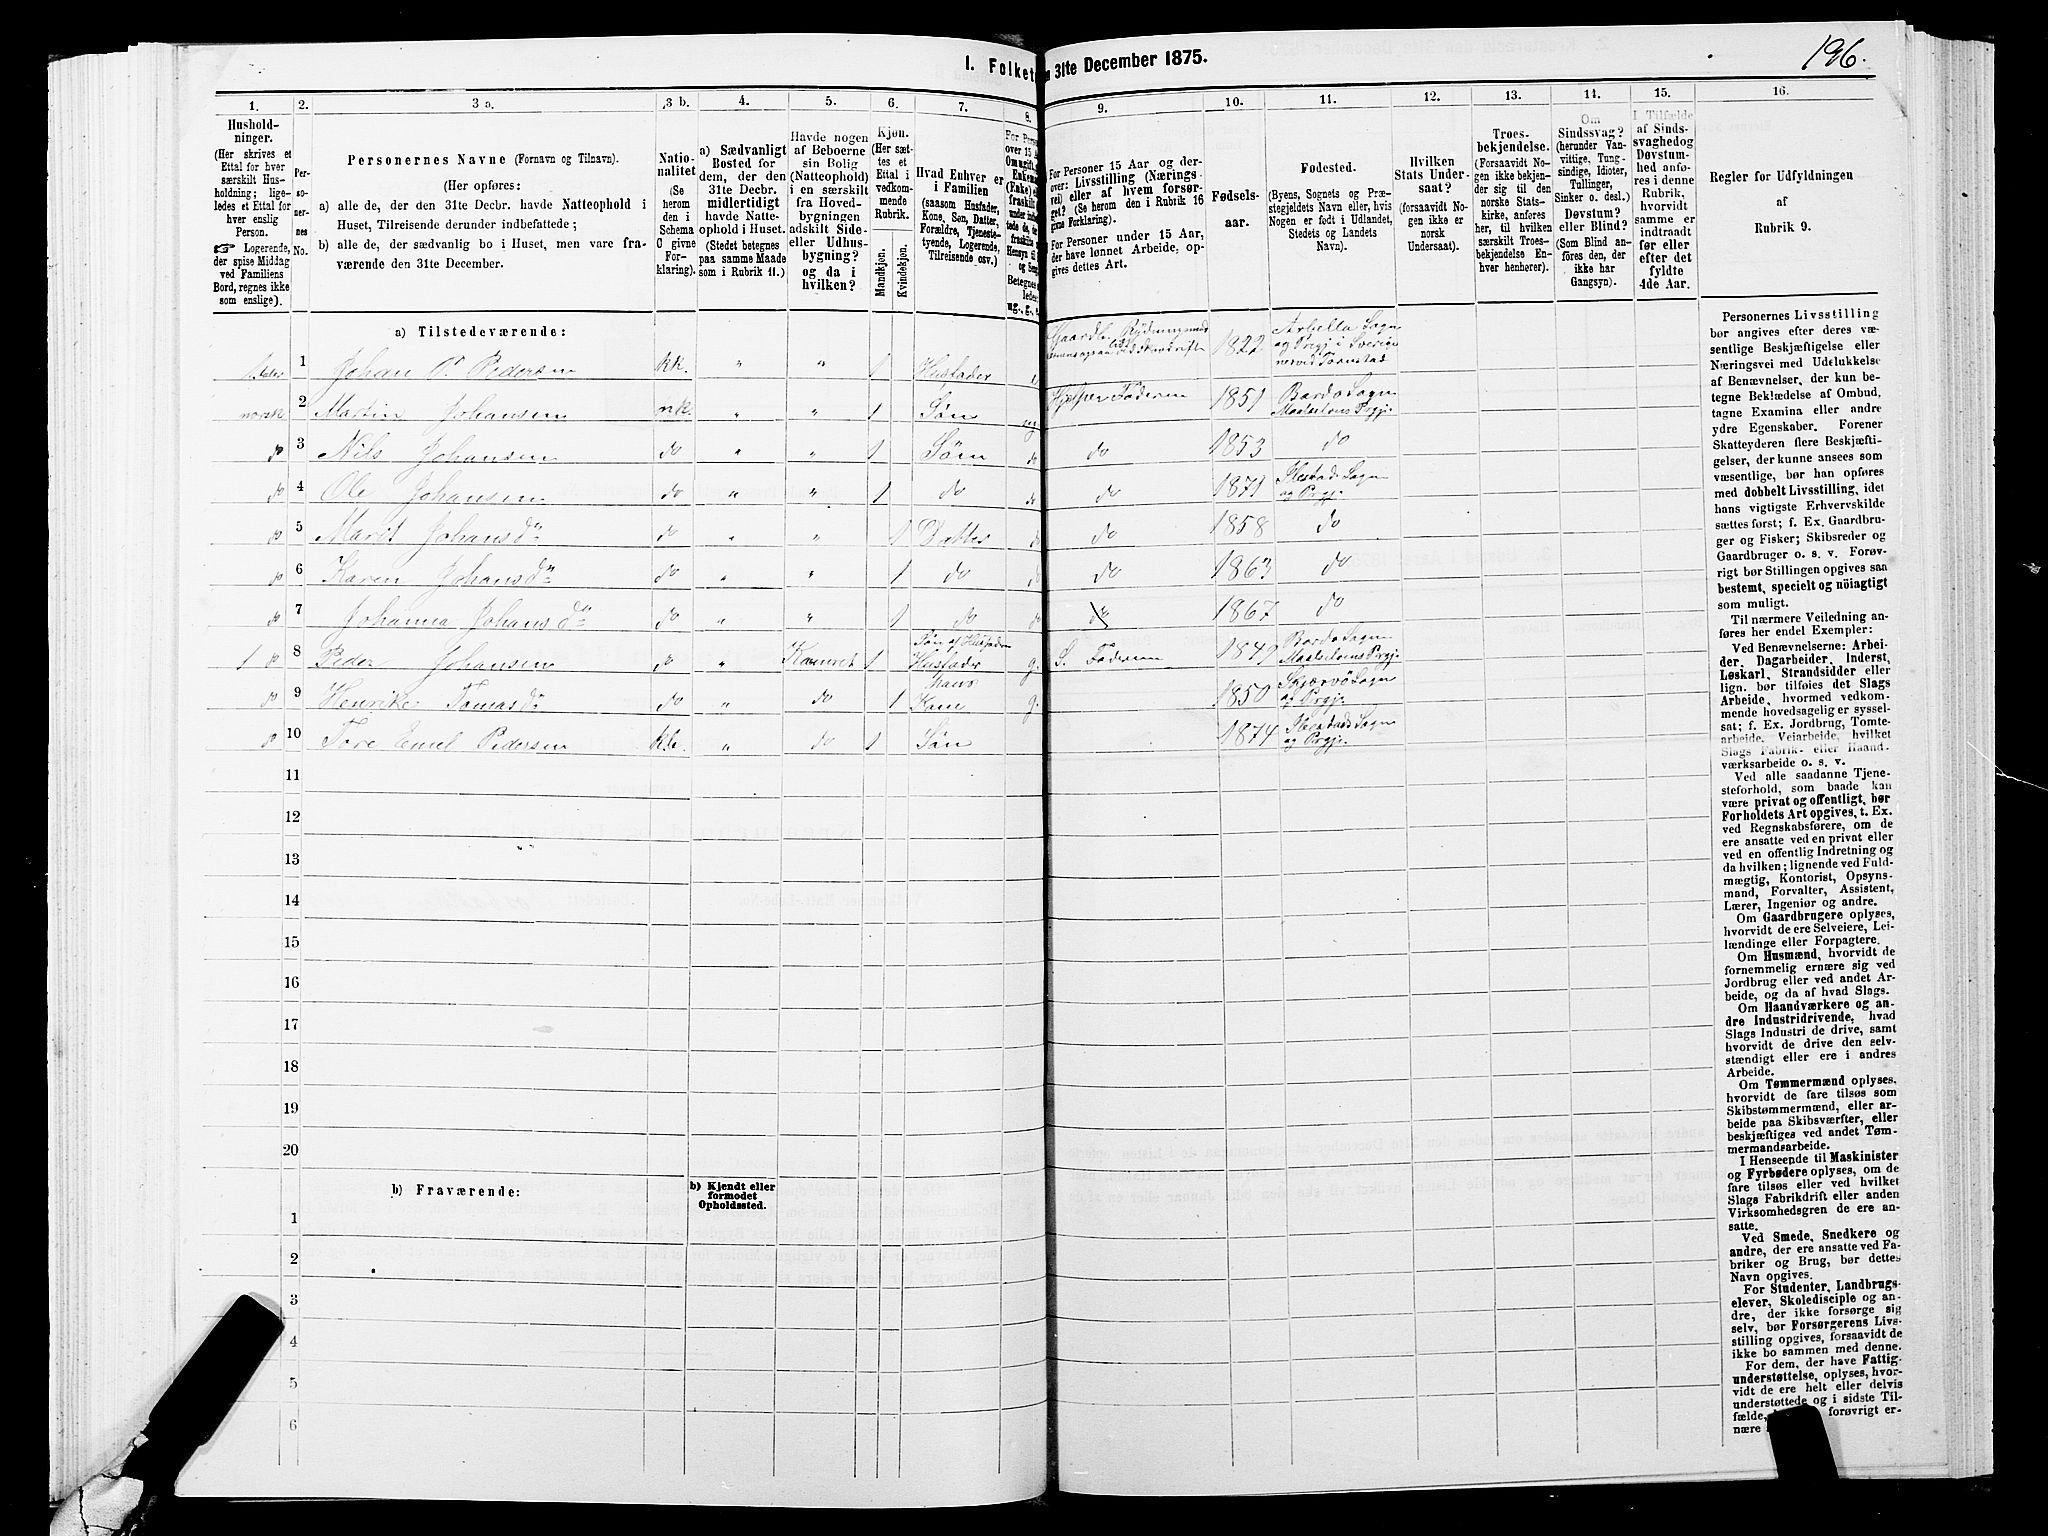 I. Folket
n 31te December 1875.
196.
1.
2.
3 a.
3 b.
4.
5.
6.
7.
8.
9.
10.
11.
12.
13.
14.
15.
16.
Hushold-
ninger.
(Her skrives et
Ettal for hver
særskilt Hus-
holdning; lige-
ledes et Ettal for
hver enslig
Person.
☞ Logerende,
der spise Middag
ved Familiens
Bord, regnes ikke
som enslige).
Per-
so-
ner-
nes
No.
Personernes Navne (Fornavn og Tilnavn).
(Her opføres:
a) alle de, der den 31te Decbr. havde Natteophold i
Huset, Tilreisende derunder indbefattede;
b) alle de, der sædvanlig bo i Huset, men vare fra-
værende den 31te December.
Natio-
nalitet
(Se
herom
den i
Schema
O givne
For-
klaring).
a) Sædvanligt
Bosted for
dem, der den
31te Decbr.
midlertidigt
havde Natte-
ophold i Huset.
(Stedet betegnes
paa samme Maade
som i Rubrik 11.)
Havde nogen
af Beboerne
sin Bolig
(Natteophold)
i en særskilt
fra Hoved-
bygningen
adskilt Side-
eller Udhus-
bygning?
og da i
hvilken?
Kjøn.
(Her sæt-
tes et
Ettal i
vedkom-
mende
Rubrik.
Mandkjøn.
Kvindekjøn.
Hvad Enhver er
i Familien
(saasom Husfader,
Kone, Søn, Datter,
Forældre, Tjeneste-
tyende, Logerende,
Tilreisende osv.)
For Personer 15 Aar og der-
over: Livsstilling (Nærings-
vei) eller af hvem forsør-
get? (Se herom den i Rubrik 16
givne Forklaring).
For Personer under 15 Aar,
der have lønnet Arbeide, op-
gives dettes Art.
Fødsels-
aar.
Fødested.
(Byens, Sognets og Præ-
stegjeldets Navn eller, hvis
Nogen er født i Udlandet,
Stedets og Landets
Navn).
Hvilken
Stats Under-
saat?
(forsaavidt No-
gen ikke er
norsk
Undersaat).
Troes-
bekjendelse.
(Forsaavidt No-
gen ikke bekjen-
der sig til den
norske Stats-
kirke, anføres
her, til hvilken
særskilt Troes-
bekjendelse En-
hver henhører).
Om
Sindssvag?
(herunder Van-
vittige, Tung-
sindige, Idioter,
Tullinger,
Sinker o. desl.)
Døvstum?
eller Blind?
(Som Blind an-
føres den, der
ikke har
Gangsyn).
I Tilfælde
af Sinds-
svaghedog
Døvstum-
hed anfø-
res i denne
Rubrik.
hvorvidt
samme er
indtraadt
før eller
efter det
fyldte
4de Aar.
Regler for Udfyldningen
af
Rubrik 9.
a) Tilstedeværende:
1 Johan P. Pedersen kk. " " 1 Husfader 1822
2 norsk Martin Johansen nk. " " 1 Søn ug Hjelper Faderen 1851 Bardo Sogn Maalselvens Prgj.
do 3 Nils Johansen do " " 1 Søn do do 1853 do
do 4 Ole Johansen do " " 1 do do do 1871 Sogn og Prgj.
do 5 Marit Johansd. do " " 1 Datter do do 1858 do
do 6 Karen Johansd. do " " 1 do do do 1863 do
do 7 Johanna Johansd. do " " 1 do do 1867 do
1 do 8 Peder Johansen do " 1 Søn af Husfaderen Husfader g. S. Faderen 1849 Bardo Sogn Maalselvens Prgj.
do 9 Henrike Tomasd. do " do 1 hans Kone g. 1850 Skjærvö Sogn og Prgj.
do 10 Tore Emel Pedersen " do 1 Søn 1874 Sogn og Prgj.
11
12
13
14
15
16
17
18
19
20
b) Fraværende:
b) Kjendt eller
formodet
Opholdssted.
1
2
3
4
5
6
Personernes Livsstilling
bør angives efter deres væ-
sentlige Beskjæftigelse eller
Næringsvei med Udelukkelse
af Benævnelser, der kun be-
tegne Beklædelse af Ombud,
tagne Examina eller andre
ydre Egenskaber. Forener
Skatteyderen flere Beskjæfti-
gelser, der kunne ansees som
væsentlige, bør han opføres
med dobbelt Livsstilling, idet
hans vigtigste Erhvervskilde
sættes først; f. Ex. Gaardbru-
ger og Fisker; Skibsreder og
Gaardbruger o. s. v. Forøv-
rigt bør Stillingen opgives saa
bestemt, specielt og nöiagtigt
som muligt.
Til nærmere Veiledning an-
føres her endel Exempler:
Ved Benævnelserne: Arbei-
der, Dagarbeider, Inderst,
Løskarl, Strandsidder eller
lign. bør tilføies det Slags
Arbeide, hvormed vedkom-
mende hovedsagelig er syssel-
sat; f. Ex. Jordbrug, Tomte-
arbeide, Veiarbeide, hvilket
Slags Fabrik- eller Haand-
værksarbeide o. s. v.
Ved alle saadanne Tjene-
steforhold, som baade kan
være privat og offentligt, bør
Forholdets Art opgives, t. Ex.
ved Regnskabsførere, om de
ere ansatte ved en privat eller
ved en offentlig Indretning og
da hvilken; lignende ved Fuld-
mægtig, Kontorist, Opsyns-
mand, Forvalter, Assistent,
Lærer, Ingeniør og andre.
Om Gaardbrugere oplyses,
hvorvidt de ere Selveiere, Lei-
lændinge eller Forpagtere.
Om Husmænd, hvorvidt de
fornemmelig ernære sig ved
Jordbrug eller ved andet Ar-
beide, og da af hvad Slags.
Om Haandværkere og an-
dre Industridrivende, hvad
Slags Industri de drive, samt
hvorvidt de drive den selv-
stændigt eller ere i andres
Arbeide.
Om Tømmermænd oplyses,
hvorvidt de fare tilsøs som
Skibstømmermænd, eller ar-
beide paa Skibsværfter, eller
beskjæftiges ved andet Tøm-
mermandsarbeide.
I Henseende til Maskinister
og Fyrbødere oplyses, om de
fare tilsøs eller ved hvilket
Slags Fabrikdrift eller anden
Virksomhedsgren de ere an-
satte.
Ved Smede, Snedkere og
andre, der ere ansatte ved Fa-
briker og Brug, bør dettes
Navn opgives.
For Studenter, Landbrugs-
elever, Skoledisciple og an-
dre, der ikke forsørge sig
selv, bør Forsørgerens Livs-
stilling opgives, forsaavidt de
ikke bo sammen med denne.
For dem, der have Fattig-
understøttelse, oplyses, hvor-
vidt de ere helt eller delvis
understøttede og i sidste Til-
fælde, forøvrigt er-
nære